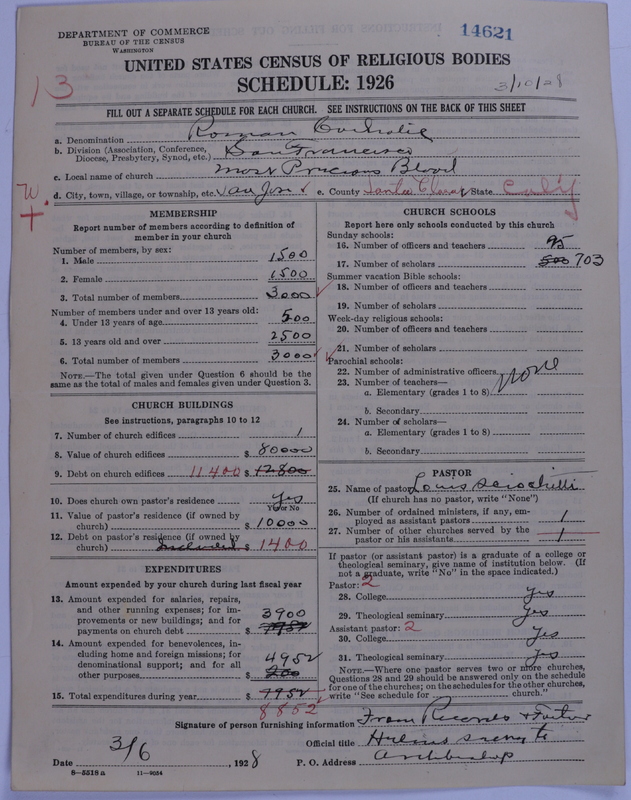 DEPARTMENT OF COMMERCE
BUREAU OF THE CENSUS
WASHINGTON
14621
UNITED STATES CENSUS OF RELIGIOUS BODIES
SCHEDULE: 1926
13
3/10/28
FILL OUT A SEPARATE SCHEDULE FOR EACH CHURCH. SEE INSTRUCTIONS ON THE BACK OF THIS SHEET
a. Denomination Roman Catholic
b. Division (Association, Conference, Diocese, Presbytery, Synod, etc.) San Francisco
c. Local name of church Most Precious Blood
W. d. City, town, village, or township, etc. San Jose e. County Santa Clara State Calif
MEMBERSHIP
Report number of members according to definition of
member in your church
Number of members, by sex:
1. Male 1500
2. Female 1500
3. Total number of members 3000
Number of members under and over 13 years old:
4. Under 13 years of age 500
5. 13 years old and over 2500
6. Total number of members 3000
NOTE.—The total given under Question 6 should be
same as the total of males and females given under Question 3.
CHURCH BUILDINGS
See instructions, paragraphs 10 to 12
7. Number of church edifices 1
8. Value of church edifices $ 80000
9. Debt on church edifices 11400 $ 12800
10. Does church own pastor's residence yes
Yes or No
11. Value of pastor's residence (if owned by
church) $ 10000
12. Debt on pastor's residence (if owned by
church) Included $ 1400
EXPENDITURES
Amount expended by your church during last fiscal year
13. Amount expended for salaries, repairs,
and other running expenses; for im-
provements or new buildings; and for 3900
payments on church debt $
14. Amount expended for benevolences, in-
cluding home and foreign missions; for
denominational support; and for all 4952
other purposes $ 200
15. Total expenditures during year $ 7952
8852
CHURCH SCHOOLS
Report here only schools conducted by this church
Sunday schools:
16. Number of officers and teachers 95
17. Number of scholars 500 703
Summer vacation Bible schools:
18. Number of officers and teachers
19. Number of scholars
Week-day religious schools:
20. Number of officers and teachers
21. Number of scholars
Parochial schools:
22. Number of administrative officers none
23. Number of teachers—
a. Elementary (grades 1 to 8)
b. Secondary
24. Number of scholars—
a. Elementary (grades 1 to 8)
b. Secondary
PASTOR
25. Name of pastor Louis
(If church has no pastor, write "None")
26. Number of ordained ministers, if any, em-
ployed as assistant pastors 1
27. Number of other churches served by the
pastor or his assistants 1
If pastor (or assistant pastor) is a graduate of a college or
theological seminary, give name of institution below. (If
not a graduate, write "No" in the space indicated.)
Pastor: 2
28. College yes
29. Theological seminary yes
Assistant pastor: 2
30. College Yes
31. Theological seminary yes
NOTE.—Where one pastor serves two or more churches,
Questions 28 and 29 should be answered only on the schedule
for one of the churches; on the schedules for the other churches,
write "See schedule for church."
Signature of person furnishing information From Records +
Official title to
Date 3/6, 1928 P. O. Address Archbishop
8—5518 a 11—9054